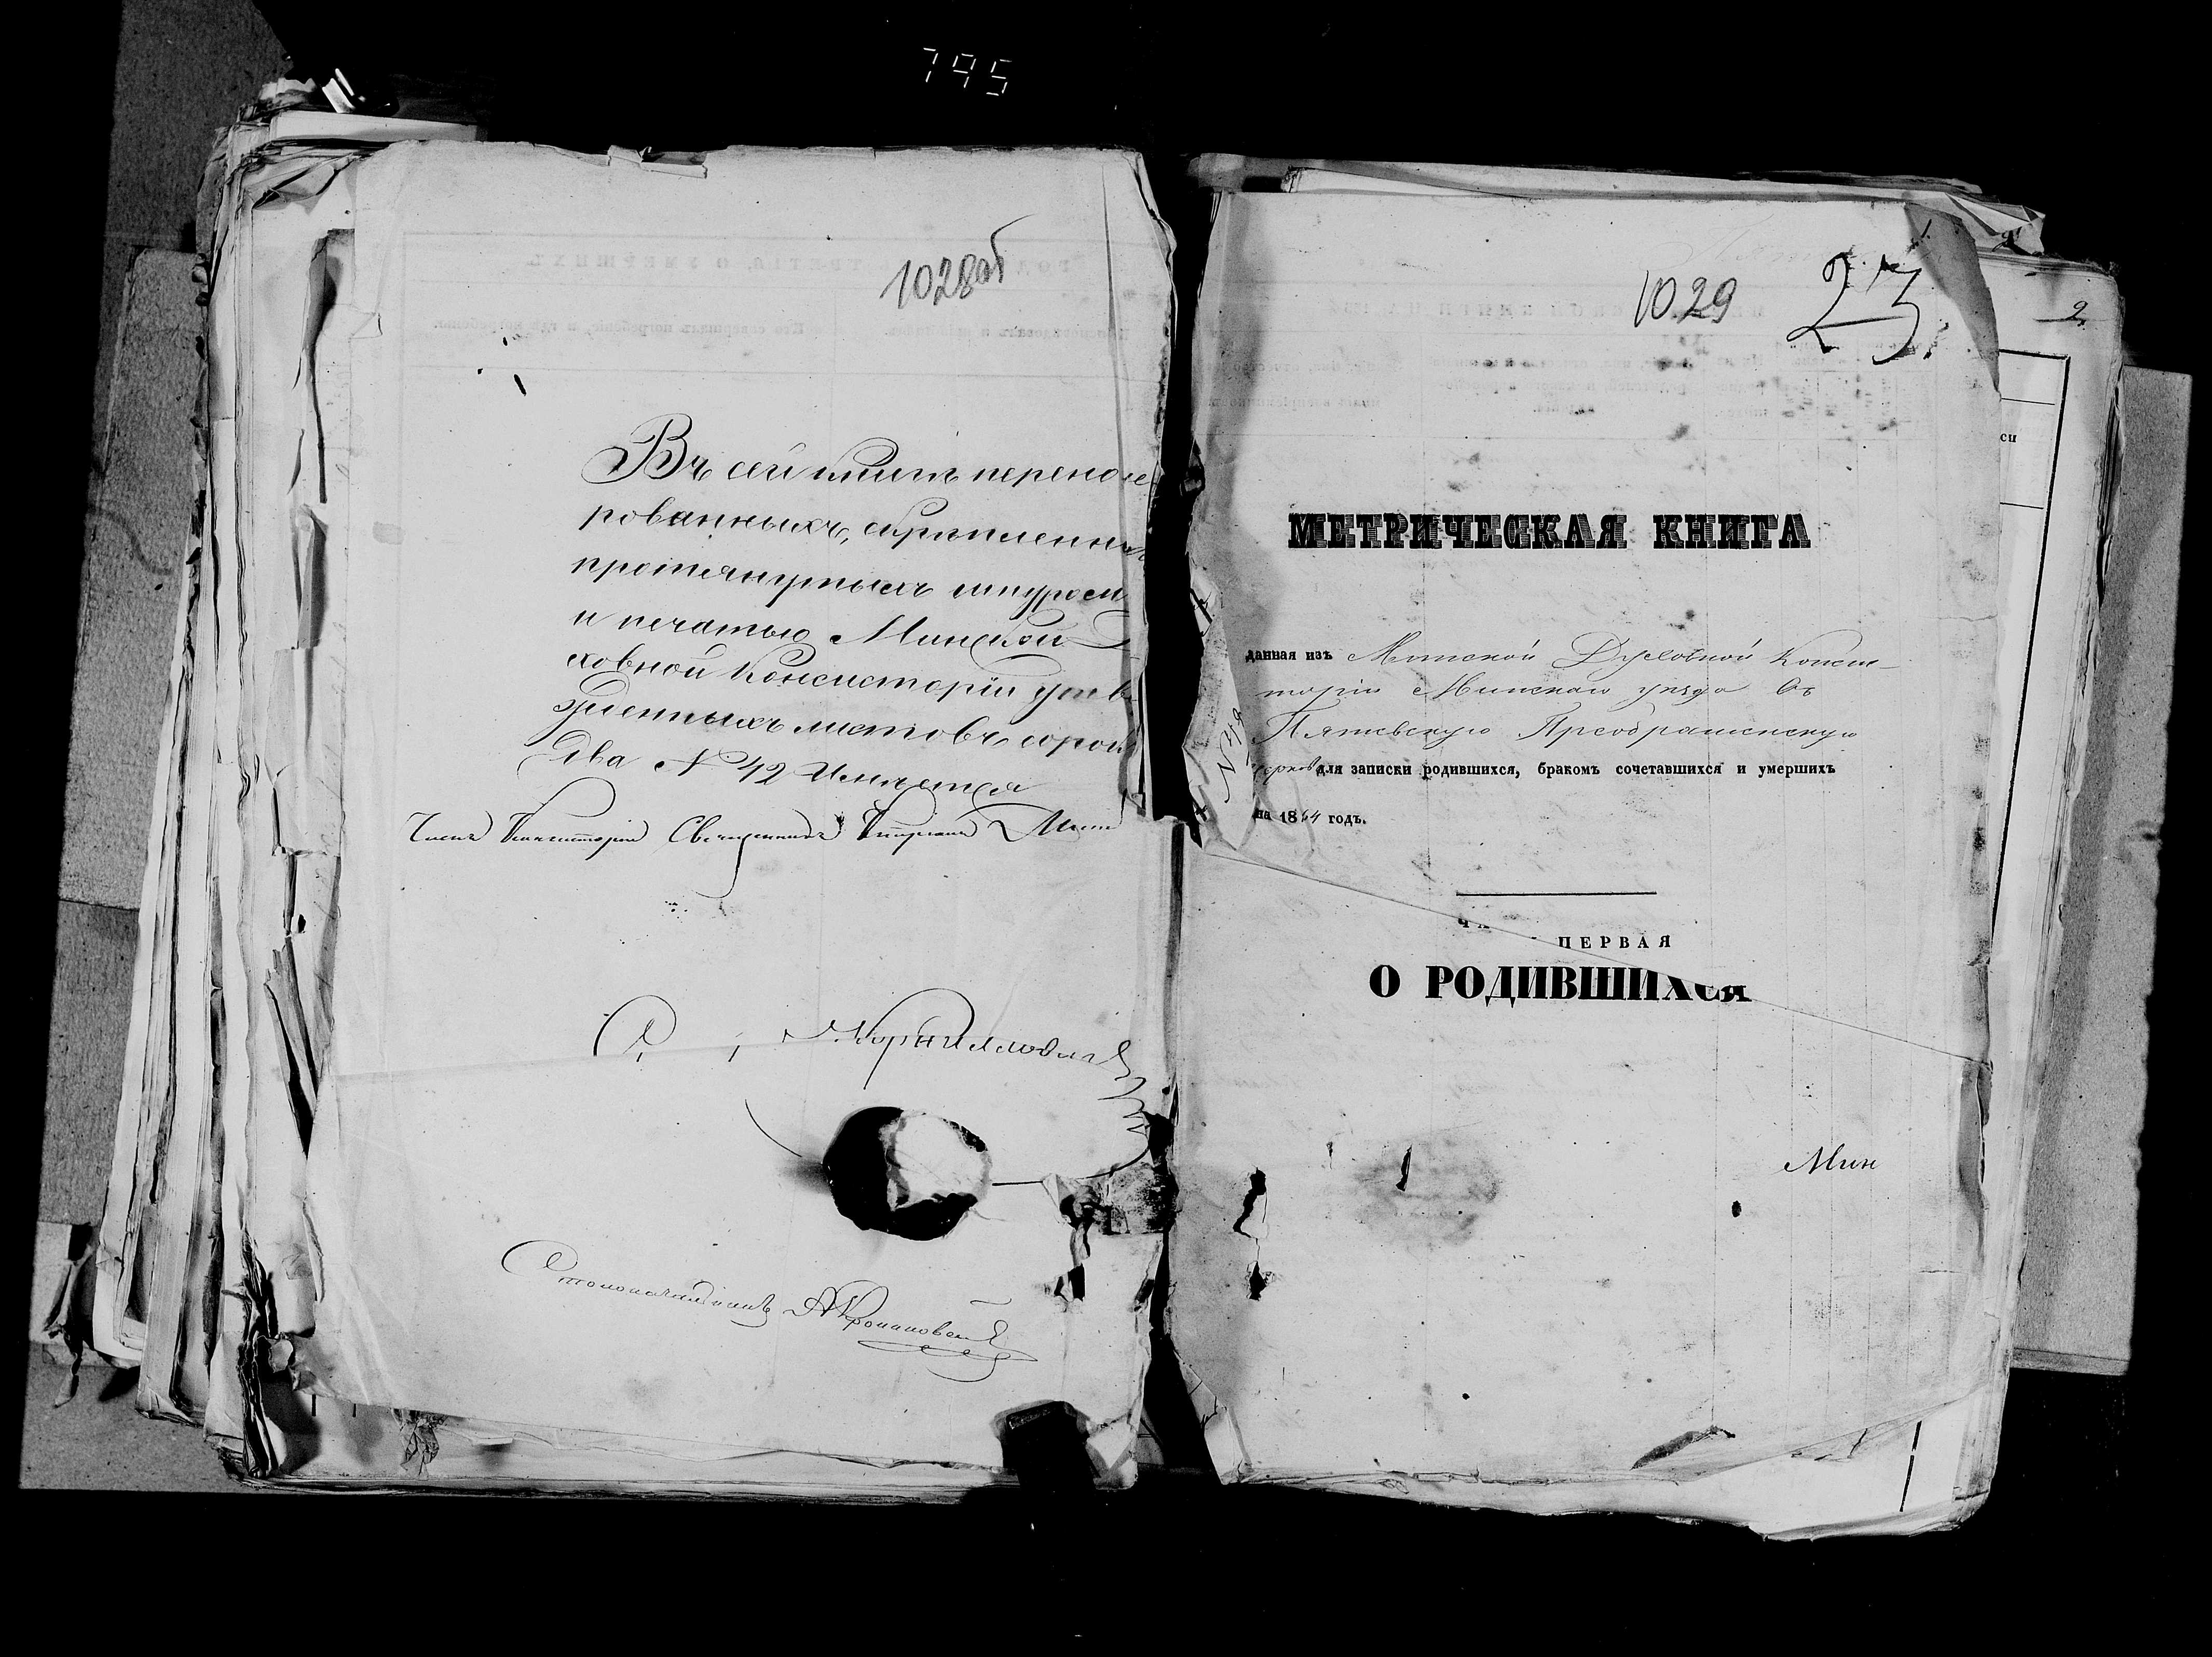 795
1028об
Въ сей книгѣ перенуме
рованныхъ, скрѣпленных
протянутыхъ шнуром
и печатью Минской Д
ховной Консисторіи утвер
жденныхъ листовъ сорок
два № 42 Имѣется
Членъ Консисторіи Священникъ
Корниловичъ
Столоначальникъ
1029 23
2
си
МЕТРИЧЕСКАЯ КНИГА
данная изъ Минской Духовной Консис-
торіи Минскаго уѣзда въ
Пятевскую Преображенскую
церковь для записки родившихся, бракомъ сочетавшихся и умершихъ
на 1864 годъ.
ПЕРВАЯ
О РОДИВШИХСЯ
Мин